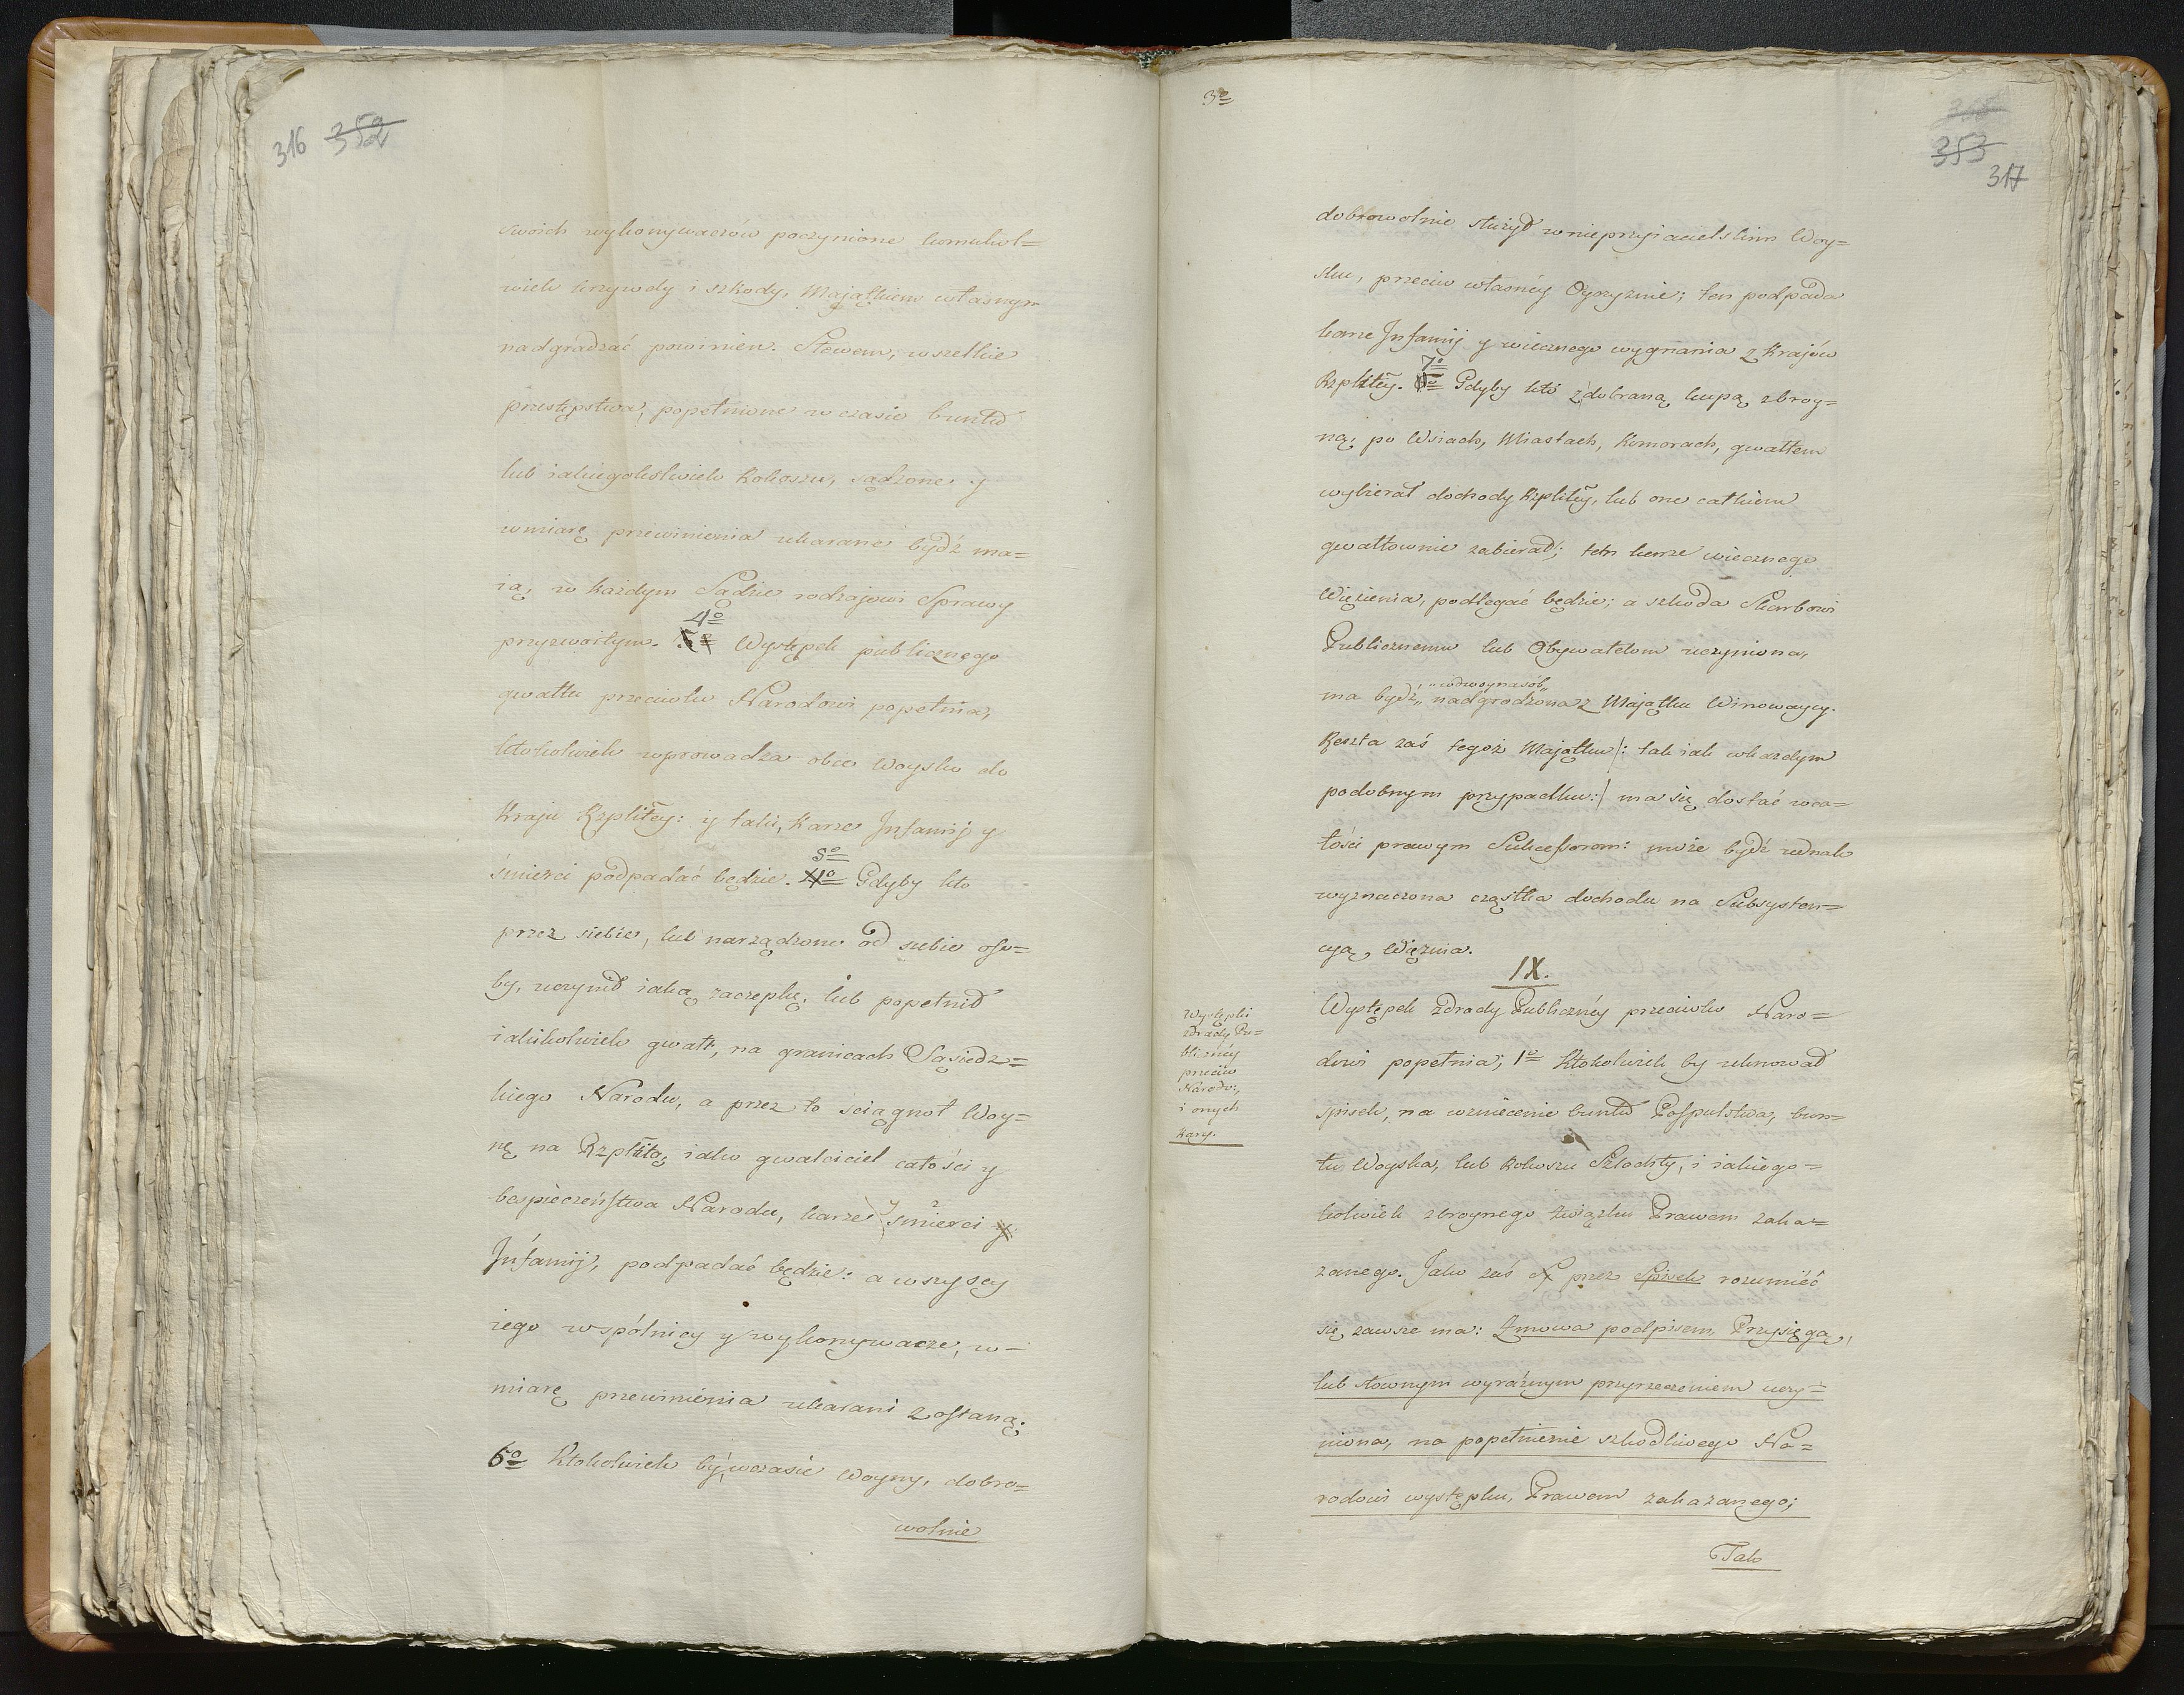 316 352
swoich wykonywaczów poczynione komukol=
wiek krzywdy i szkody, Majątkiem własnym
nadgradzać powinien. Słowem, wszelkie
przestępstwa, popełnione w czasie buntu
lub iakiegokolwiek Rokoszu, sądzone y
wmiarę przewinienia ukarane bydź ma=
ią, w każdym Sądzie rodzajowi Sprawy
4º
przyzwoitym. Występek publicznego
gwałtu przeciwko Narodowi popełnia,
ktokolwiek wprowadza obce Woysko do
Kraju Rzplitey: y taki, Karze Infamij y
5º
śmierci podpadać będzie. 4º Gdyby kto
przez siebie, lub narządzone od siebie oso=
by, uczynił iaką zaczepkę, lub popełnił
iakikolwiek gwałt, na granicach Sąsiedz=
kiego Narodu, a przez to ściągnoł Woy=
nę na Rzplitą, iako gwałciciel całości y
bespieczeństwa Narodu, karze y śmierci 2 y
Infamij, podpadać będzie: a wszyscy
iego wspólnicy y wykonywacze, w=
miarę przewinienia ukarani zostaną.
6º Ktokolwiek by, wczasie Woyny, dobro=
wolnie
3º
353
317
dobrowolnie służył w nieprzyiacielskim Woy=
sku, przeciw własnéy Oyczyznie; ten podpada
karze Infamij y wiecznego wygnania z Krajów
7º
Rzplitéy. 6º Gdyby kto zdobraną kupą zbroy=
ną, po Wsiach, Miastach, Komorach, gwałtem
wybierał dochody Rzplitéy, lub one całkiem
gwałtownie zabierał; ten karze wiecznego
Więzienia, podlegać będzie; a szkoda Skarbowi
Publicznemu lub Obywatelom uczyniona,
"wdwoynasób"
ma bydź "nadgrodzona z Majątku Winowaycy.
Reszta zaś tegoż Majątku /: tak iak wkażdym
podobnym przypadku:/ ma się dostać wca=
łości prawym Sukcessorom: może bydź iednak
wyznaczona cząstka dochodu na Subsysten=
cyą, Więźnia.
IX.
Występki
zdrady Pu=
bliczney
przeciw
Narodo:,
i onych
Kary.
Występek zdrady Publicznéy przeciwko Naro=
dowi popełnia; 1º Ktokolwiek by uknował
spisek, na wzniecenie buntu Pospulstwa, bun=
tu Woyska, lub Rokoszu Szlachty, i iakiego=
kolwiek zbroynego Związku Prawem zaka=
zanego. Jako zaś przez Spisek rozumiéć
się zawsze ma: Zmowa podpisem, Przysięgą,
lub słownym wyraźnym przyrzeczeniem uczy=
niona, na popełnienie szkodliwego Na=
rodowi występku, Prawem zakazanego;
Tak